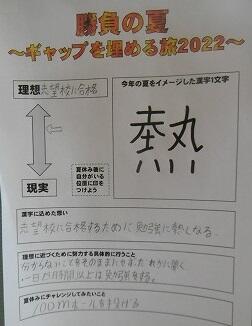 勝負の夏
～ギャップを埋める旅2022～
理想 志望校に合格
今年の夏をイメージした漢字1文字
熱
現実
夏休み後に
自分がいる
位置に印をつけ
よう
漢字に込めた想い
志望校に合格するために勉強に熱くなる。
理想に近づくために努力する具体的に行うこと
・分からないことをそのままにせず
・一日 時間以上は勉強をする。
夏休みにチャレンジしてみたいこと
100m